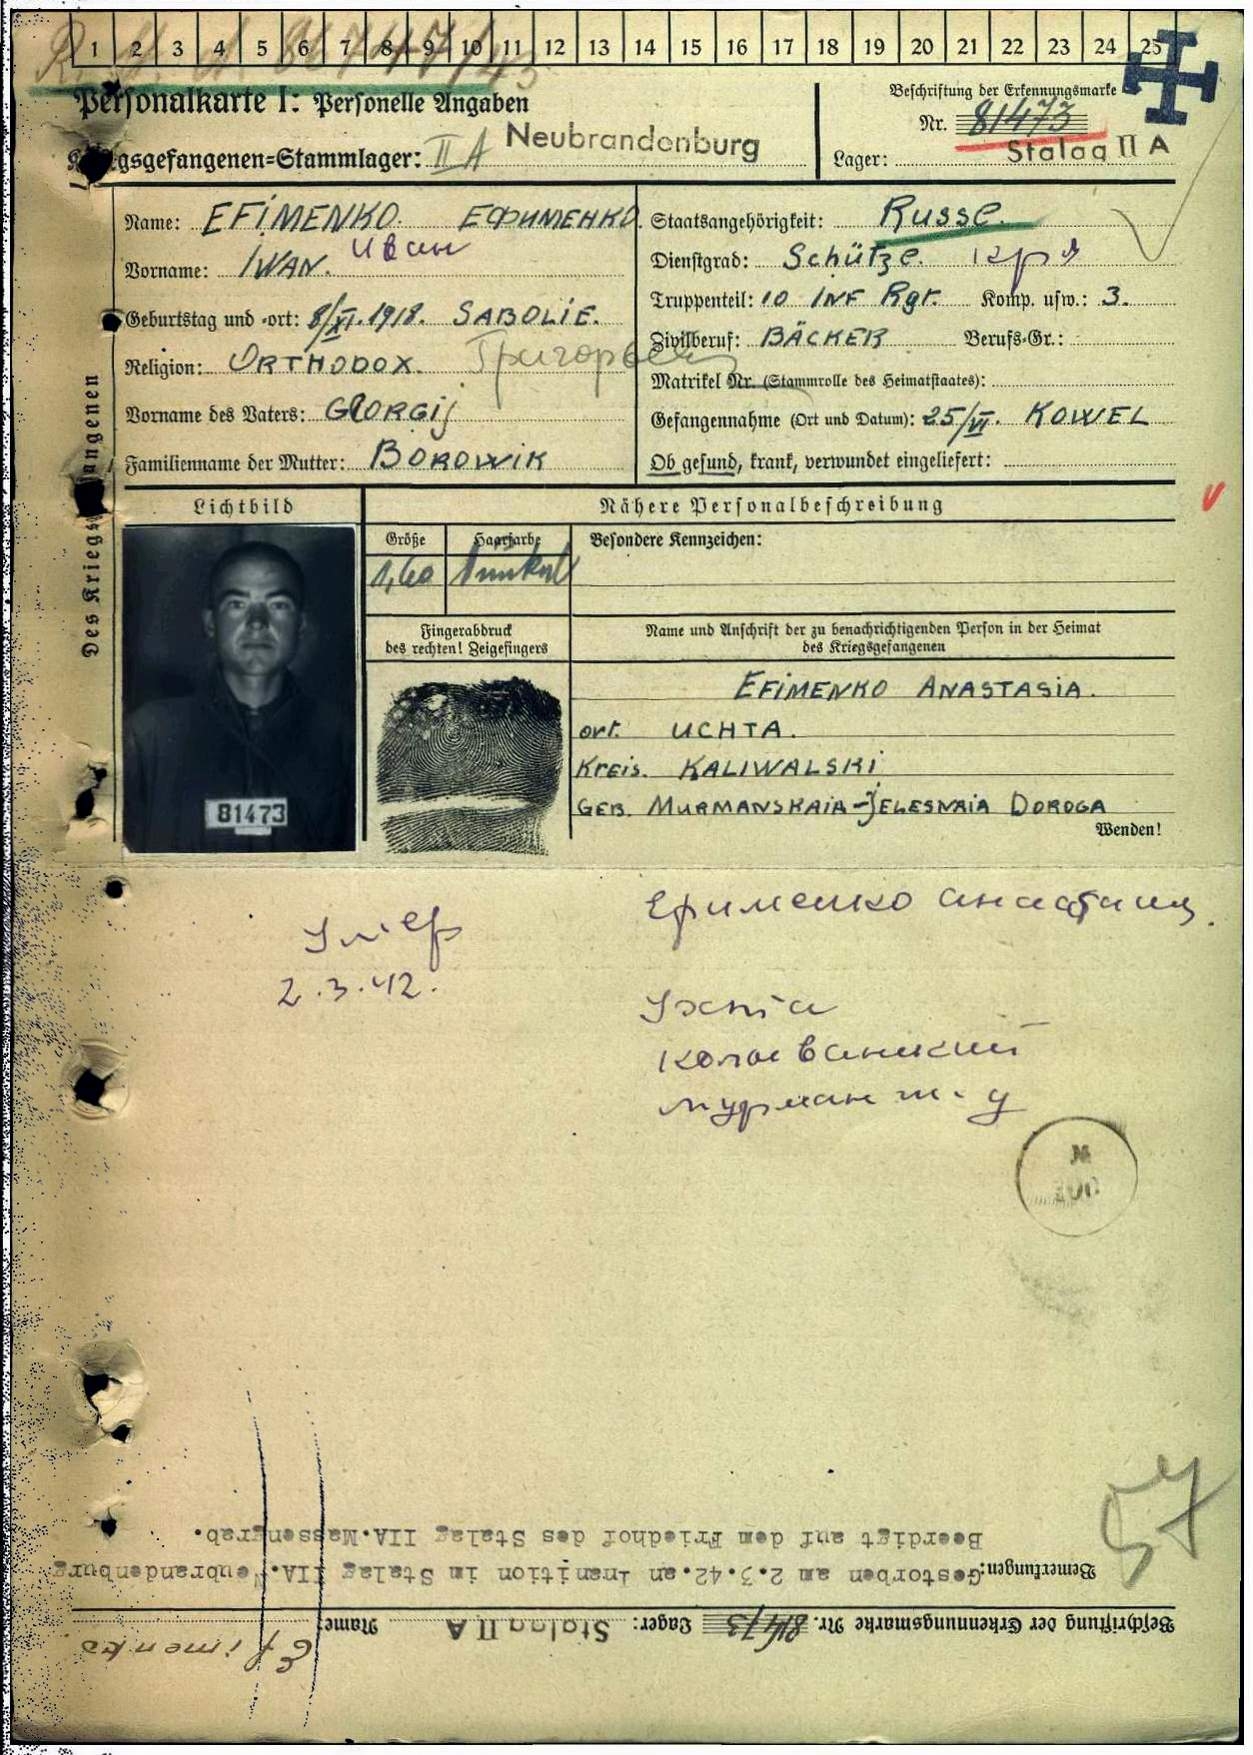 1 2 3 4 5 6 7 8 9 10 11 12 13 14 15 16 17 18 19 20 21 22 23 24 25
Personalkarte I: Personelle Angaben
Kriegsgefangenen=Stammlager: II A Neubrandenburg
Beschriftung der Erkennungsmarke
Nr. 81473
Lager: Stalag II A
Des Kriegsgefangenen
Name: EFIMENKO. ЕФИМЕНКО.
Vorname: IWAN. Иван
Geburtstag und =ort: 8/XI.1918. SABOLIE.
Religion: ORTHODOX. Григорьевич
Vorname des Vaters: GEORGIJ
Familienname der Mutter: BOROWIK
Staatsangehörigkeit: Russe.
Dienstgrad: Schütze. кр-ц
Truppenteil: 10 INF Rgt. Komp. usw.: 3.
Zivilberuf: BÄCKER Berufs=Gr.:
Matrikel Nr. (Stammrolle des Heimatstaates):
Gefangennahme (Ort und Datum): 25/VI. KOWEL
Ob gesund, krank, verwundet eingeliefert:
Lichtbild
Nähere Personalbeschreibung
Größe Haarfarbe Besondere Kennzeichen:
1,60 dunkel
Fingerabdruck
des rechten! Zeigefingers
Name und Anschrift der zu benachrichtigenden Person in der Heimat
des Kriegsgefangenen
EFIMENKO ANASTASIA.
ort. UCHTA.
Kreis. KALIWALSKI
GEB. MURMANSKAIA-JELESNAIA DOROGA
Wenden!
81473
Умер
2.3.42.
Ефименко Анастасия.
Ухта
Мурман ж. д
57
Beschriftung der Erkennungsmarke Nr. 81473 Lager: Stalag II A Name: Efimenko
Bemerkungen: Gestorben am 2.3.42.an Inanition im Stalag IIA.Neubrandenburg
Beerdigt auf dem Friedhof des Stalag IIA.Massengrab.